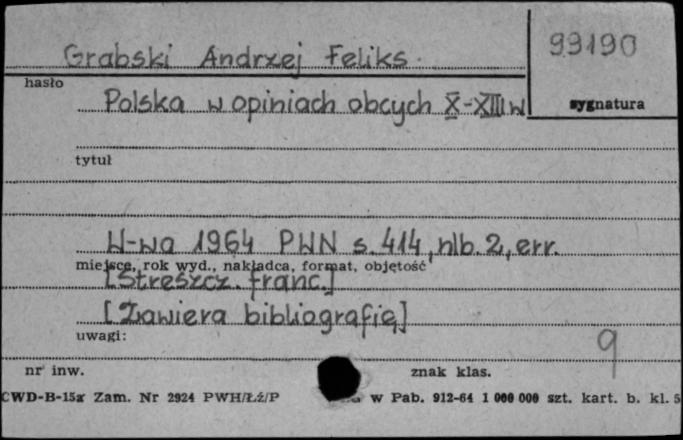 Grabski Andrzej Feliks.
99190
hasło
Polska w opiniach obcych X-XIII w
sygnatura
tytuł
W-wa 1964 PWN s. 414, nlb. 2, err.
miejsce, rok wyd., nakładca, format, objętość
[Streszcz. franc.]
[Zawiera bibliografię]
uwagi:
9
nr inw.
znak klas.
CWD-B-15a Zam. Nr 2924 PWH/Łź/P w Pab. 912-64 1 000 000 szt. kart. b. kl. 5